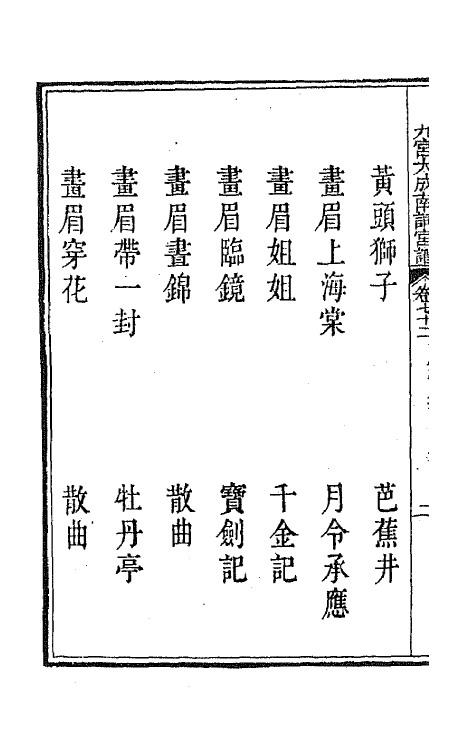 九宮大成南詞宮譜 卷七十二 二
黃頭獅子 芭蕉井
畫眉上海棠 月令承應
畫眉姐姐 千金記
畫眉臨鏡 寶劍記
畫眉畫錦 散曲
畫眉帶一封 牡丹亭
畫眉穿花 散曲